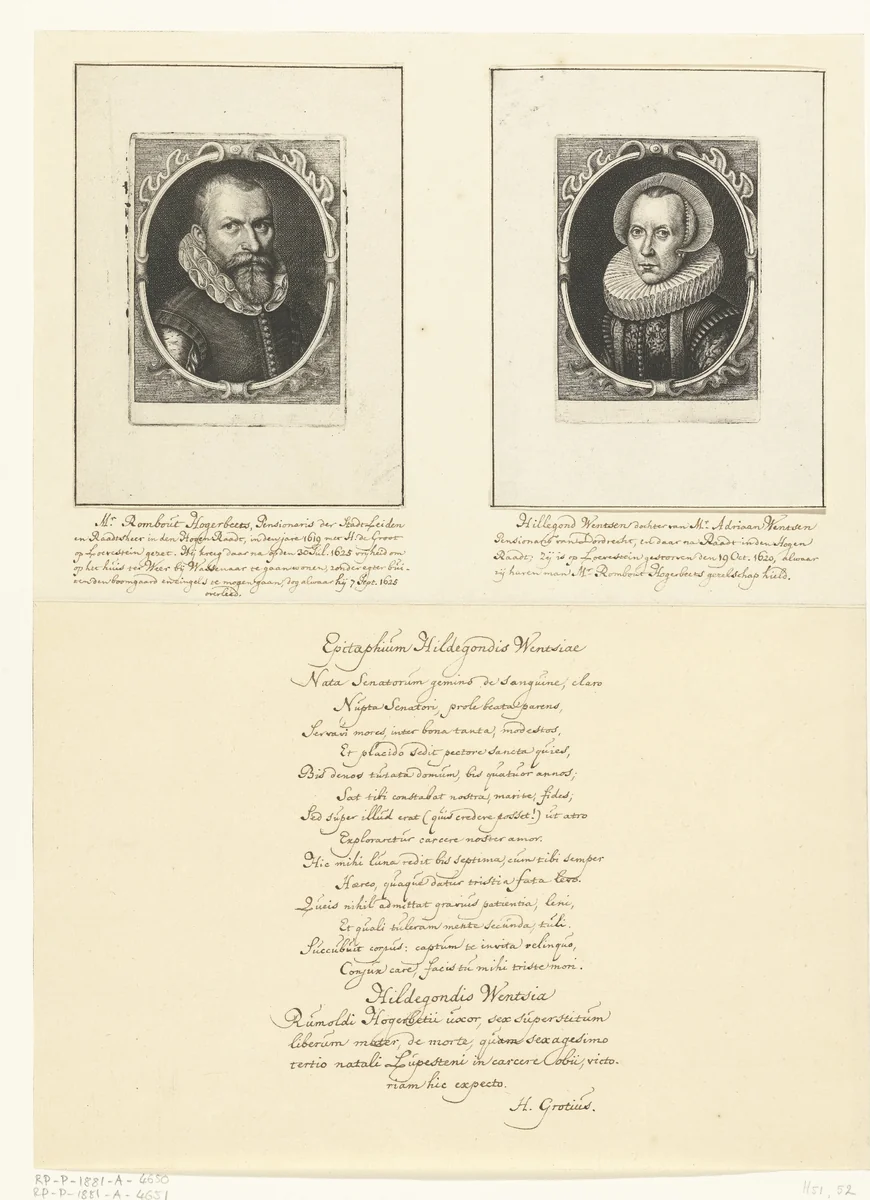 Mr. Rombout Hogerbeets, Pensionaris der Stadt Leiden
en Raadtsheer in den Hogen Raadt, in den jare 1619 met H. de Groot
op Loevestein gezet. Hij kreeg daar na op den 30 Jul. 1625 vrijheid om
op het huis ter Weer bij Wassenaar te gaan wonen, zonder egter bui-
ten den boomgaard en cingels te mogen gaan, dog alwaar hij 7 Sept. 1625
overleed.
Hillegond Wentsen dochter van Mr. Adriaan Wentsen
Pensionaris van Dordrecht, en daar na Raadt in den Hogen
Raadt; Zij is op Loevestein gestorven den 19 Oct. 1620, alwaar
zij haren man Mr. Rombout Hogerbeets gezelschap hield.
Epitaphium Hildegondis Wentsiae
Nata Senatorum gemino de sanguine, claro
Nupta Senatori, prole beata parens,
Servavi mores, inter bona tanta, modestos,
Et placido sedit pectore sancta quies,
Bis denos tutata domum, bis quatuor annos;
Sat tibi constabat nostra, marite, fides;
Sed super illud erat (quis credere posset!) ut atro
Exploraretur carcere noster amor.
Hic mihi luna redit bis septima, cum tibi semper
Haereo, quaque datur tristia fata levo.
Queis nihil admittat gravius patientia, leni,
Et quali tuleram mente secunda, tuli.
Succubuit corpus: captum te invita relinquo,
Conjux care, facis tu mihi triste mori.
Hildegondis Wentsia
Rumoldi Hogerbetii uxor, sex superstitum
liberum mater, de morte, quam sexagesimo
tertio natali Lupesteni in carcere obii, victo-
riam hic expecto.
H. Grotius.
RP-P-1881-A-4650
RP-P-1881-A-4651
H51, 52